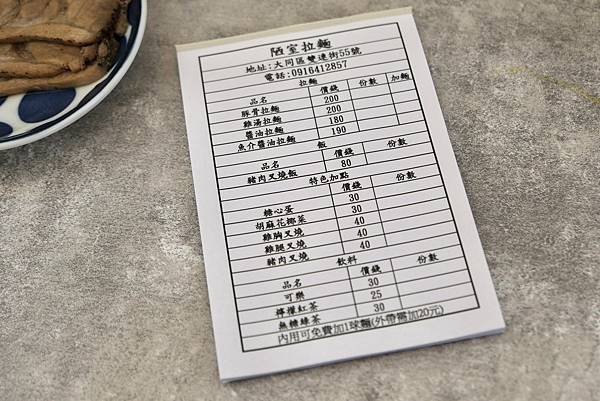 陋室拉麵
地址:大同區雙連街55號
電話:0916412857
拉麵
品名 價錢 份數 加麵
豚骨拉麵 200
雞湯拉麵 200
醬油拉麵 180
魚介醬油拉麵 190
飯
品名 價錢 份數
豬肉叉燒飯 80
特色加點
價錢 份數
糖心蛋 30
胡麻花椰菜 30
雞胸叉燒 40
雞腿叉燒 40
豬肉叉燒 40
飲料
品名 價錢 份數
可樂 30
檸檬紅茶 25
無糖綠茶 30
內用可免費加1球麵(外帶需加20元)